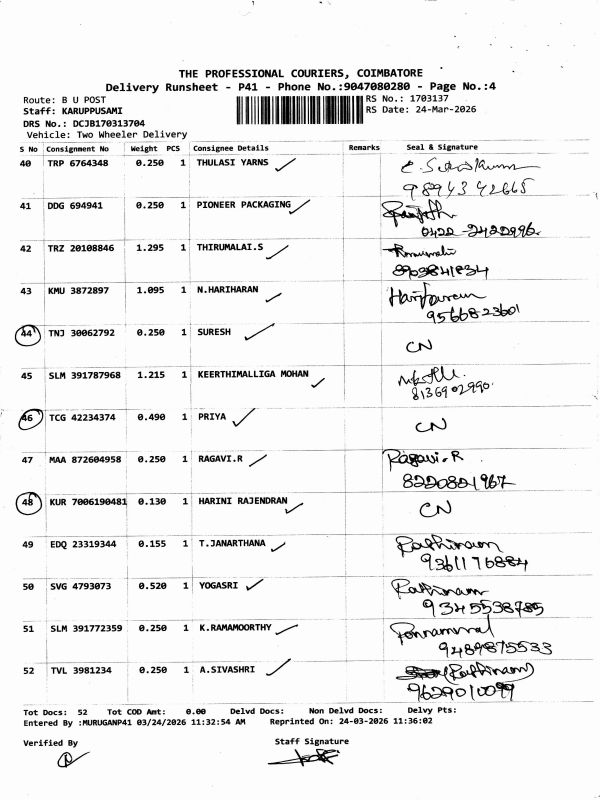 THE PROFESSIONAL COURIERS, COIMBATORE
Delivery Runsheet - P41 - Phone No.:9047080280 - Page No.:4
Route: B U POST RS No.: 1703137
Staff: KARUPPUSAMI RS Date: 24-Mar-2026
DRS No.: DCJB170313704
Vehicle: Two Wheeler Delivery
S No Consignment No Weight PCS Consignee Details Remarks Seal & Signature
40 TRP 6764348 0.250 1 THULASI YARNS
9894342665
41 DDG 694941 0.250 1 PIONEER PACKAGING
0422-2422996
42 TRZ 20108846 1.295 1 THIRUMALAI.S
8903841834
43 KMU 3872897 1.095 1 N.HARIHARAN
9566823601
44 TNJ 30062792 0.250 1 SURESH CN
45 SLM 391787968 1.215 1 KEERTHIMALLIGA MOHAN
8136902990
46 TCG 42234374 0.490 1 PRIYA CN
47 MAA 872604958 0.250 1 RAGAVI.R Ragavi.R
8220821967
48 KUR 7006190481 0.130 1 HARINI RAJENDRAN CN
49 EDQ 23319344 0.155 1 T.JANARTHANA Rathinam
9361176884
50 SVG 4793073 0.520 1 YOGASRI Rathinam
9345538785
51 SLM 391772359 0.250 1 K.RAMAMOORTHY Ponnammal
9489875533
52 TVL 3981234 0.250 1 A.SIVASHRI Rathinam
9629010099
Tot Docs: 52 Tot COD Amt: 0.00 Delvd Docs: Non Delvd Docs: Delvy Pts:
Entered By :MURUGANP41 03/24/2026 11:32:54 AM Reprinted On: 24-03-2026 11:36:02
Verified By Staff Signature